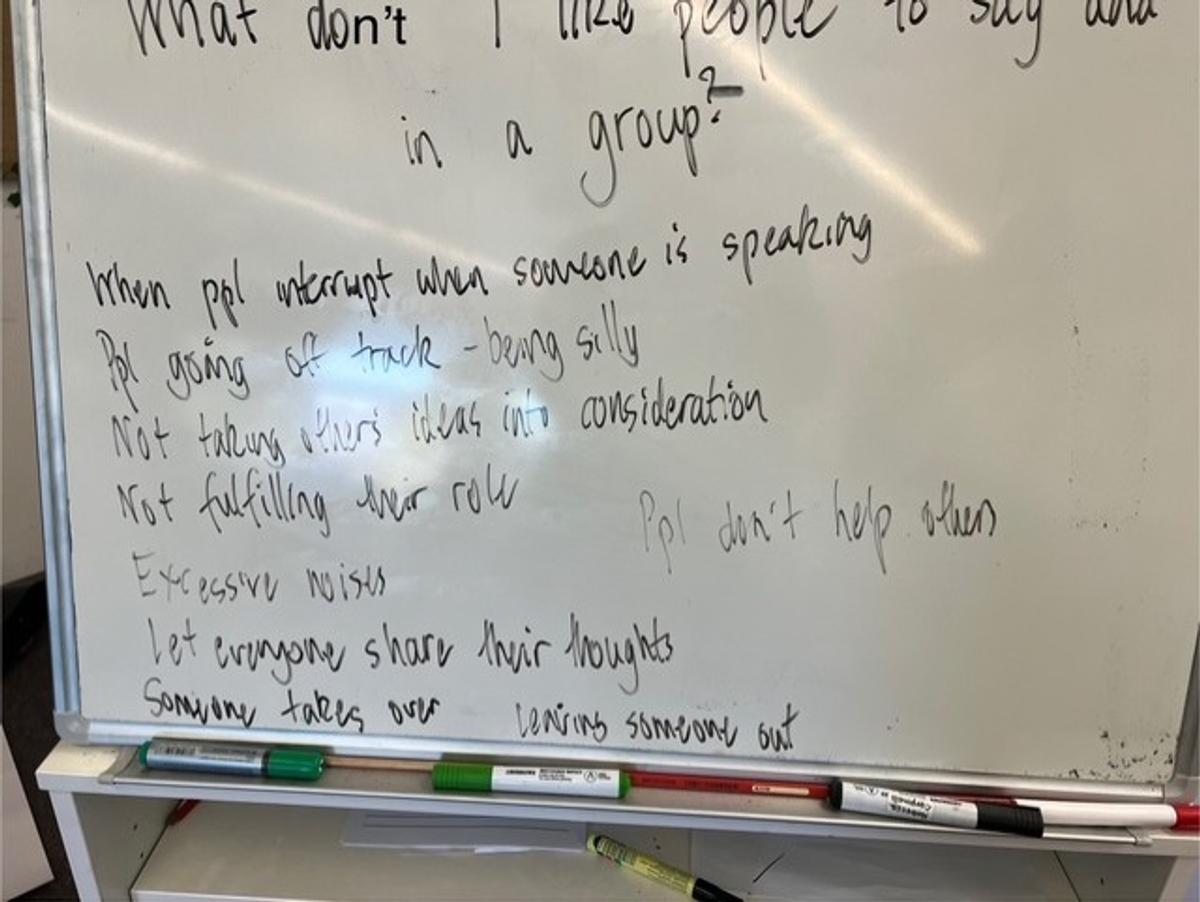 What don't I like people to say and
in a group?
When ppl interrupt when someone is speaking
Ppl going off track - being silly
Not taking others ideas into consideration
Not fulfilling their role
Ppl don't help others
Excessive noises
Let everyone share their thoughts
Someone takes over leaving someone out